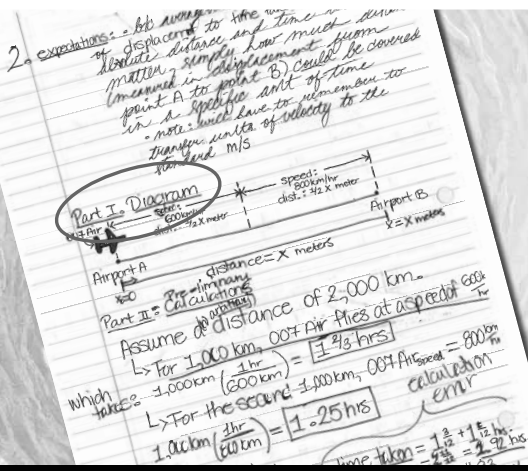 2. expectations: • avg average
of displacement to time
absolute distance and time
matter, simply how much
(measured in displacement from
point A to point B) could be covered
in a specific amt of time
• note: will have to remember to
transfer units of velocity to the
standard m/s
Part I. Diagram
speed:
600km/hr
dist.: 1/2 X meter
speed:
800km/hr
dist.: 1/2 X meter
007 Air
Airport A
x=0
Airport B
x = X meters
distance = X meters
Part II: Pre-liminary
Calculations
(w/arbitrary)
Assume a distance of 2,000 km.
↳ For 1,000 km, 007 Air flies at a speed of 600k/hr
which
takes: 1,000km (1hr/600km) = 1 2/3 hrs
↳ For the second 1,000km, 007 Air speed = 800km/hr
1,000km (1hr/800km) = 1.25 hrs
calculation
error
time taken =
2.92 hrs